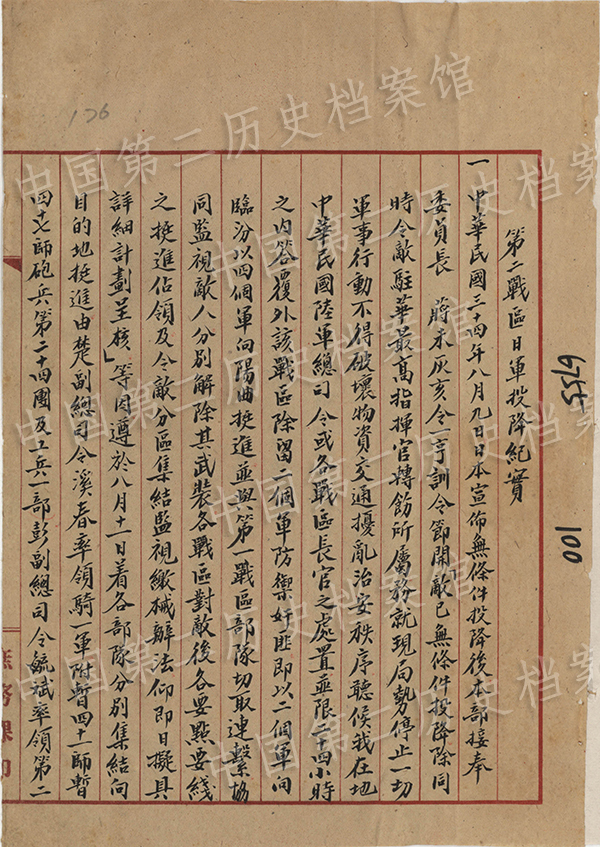 第二戰區日軍投降紀實
一 中華民國三十四年八月九日日本宣佈無條件投降後本部接奉
委員長 蔣未灰亥令一亨訓令節開敵已無條件投降除同
時令敵駐華最高指揮官轉飭所屬務就現局勢停止一切
軍事行動不得破壞物資交通擾亂治安秩序聽候我在地
中華民國陸軍總司令或各戰區長官之處置並限二十四小時
之內答覆外該戰區除留二個軍防禦奸匪即以二個軍向
臨汾以四個軍向陽曲挺進並與第一戰區部隊切取連繫協
同監視敵人分別解除其武裝各戰區對敵後各要點要綫
之挺進佔領及令敵分區集結監視繳械辦法仰即日擬具
詳細計劃呈核」等因遵於八月十一日着各部隊分別集結向
目的地挺進由楚副總司令溪春率領騎一軍附暫四十一師暫
四十七師砲兵第二十四團及工兵一部彭副總司令毓斌率領第二
6755
100
176
中国第二历史档案馆
中国第二历史档案馆
中国第二历史档案馆
中国第二历史档案馆
中国第二历史档案馆